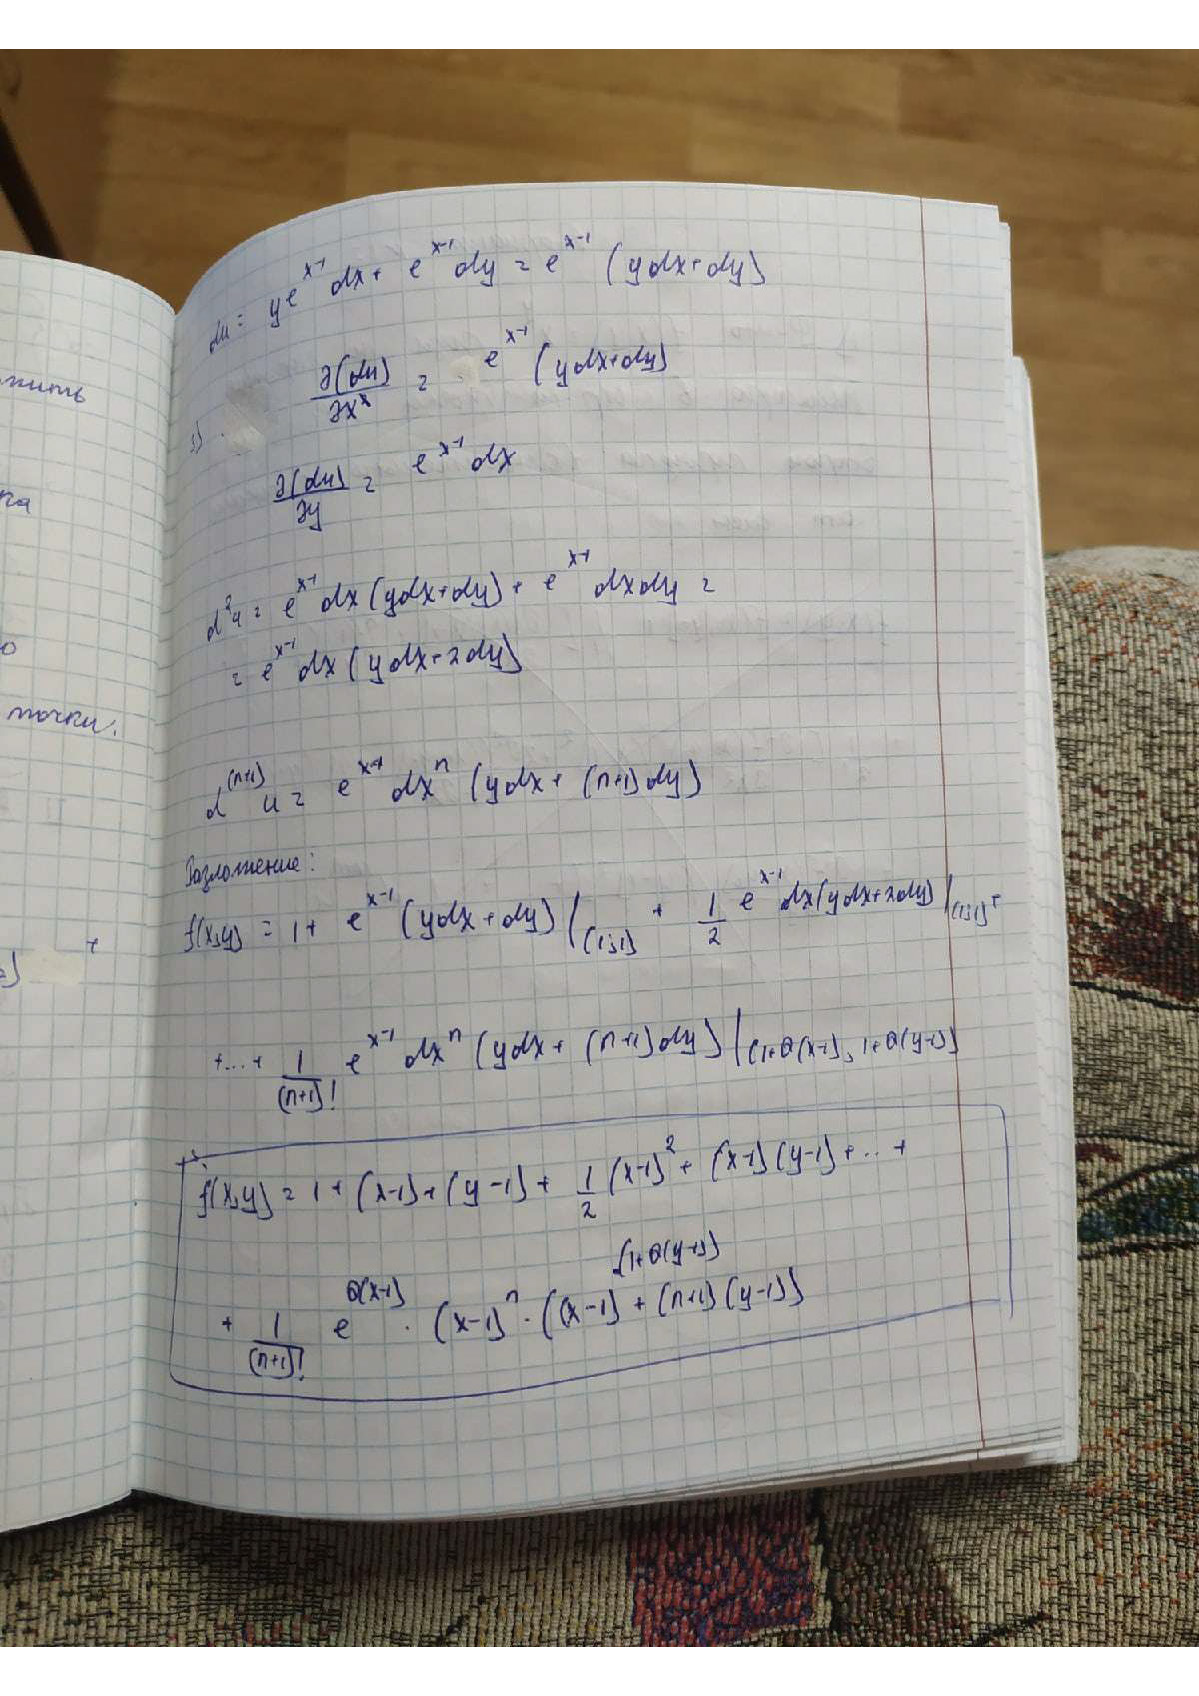 жить
ка
о
точки.
+
du = ye^{x-1} dx + e^{x-1} dy = e^{x-1} (ydx + dy)
∂(du)/∂x = e^{x-1} (ydx+dy)
∂(du)/∂y = e^{x-1} dx
d^2u = e^{x-1} dx (ydx+dy) + e^{x-1} dxdy =
= e^{x-1} dx (ydx + 2dy)
d^{(n+1)} u = e^{x-1} dx^n (ydx + (n+1)dy)
Разложение:
f(x,y) = 1 + e^{x-1} (ydx + dy) |_{(1;1)} + 1/2 e^{x-1} dx(ydx+2dy) |_{(1;1)} +
+...+ 1/(n+1)! e^{x-1} dx^n (ydx + (n+1)dy) |_{(1+θ(x-1), 1+θ(y-1))}
f(x,y) = 1 + (x-1) + (y-1) + 1/2 (x-1)^2 + (x-1)(y-1) + ... +
(1+θ(y-1))
+ 1/(n+1)! e^{θ(x-1)} · (x-1)^n · ((x-1) + (n+1)(y-1))